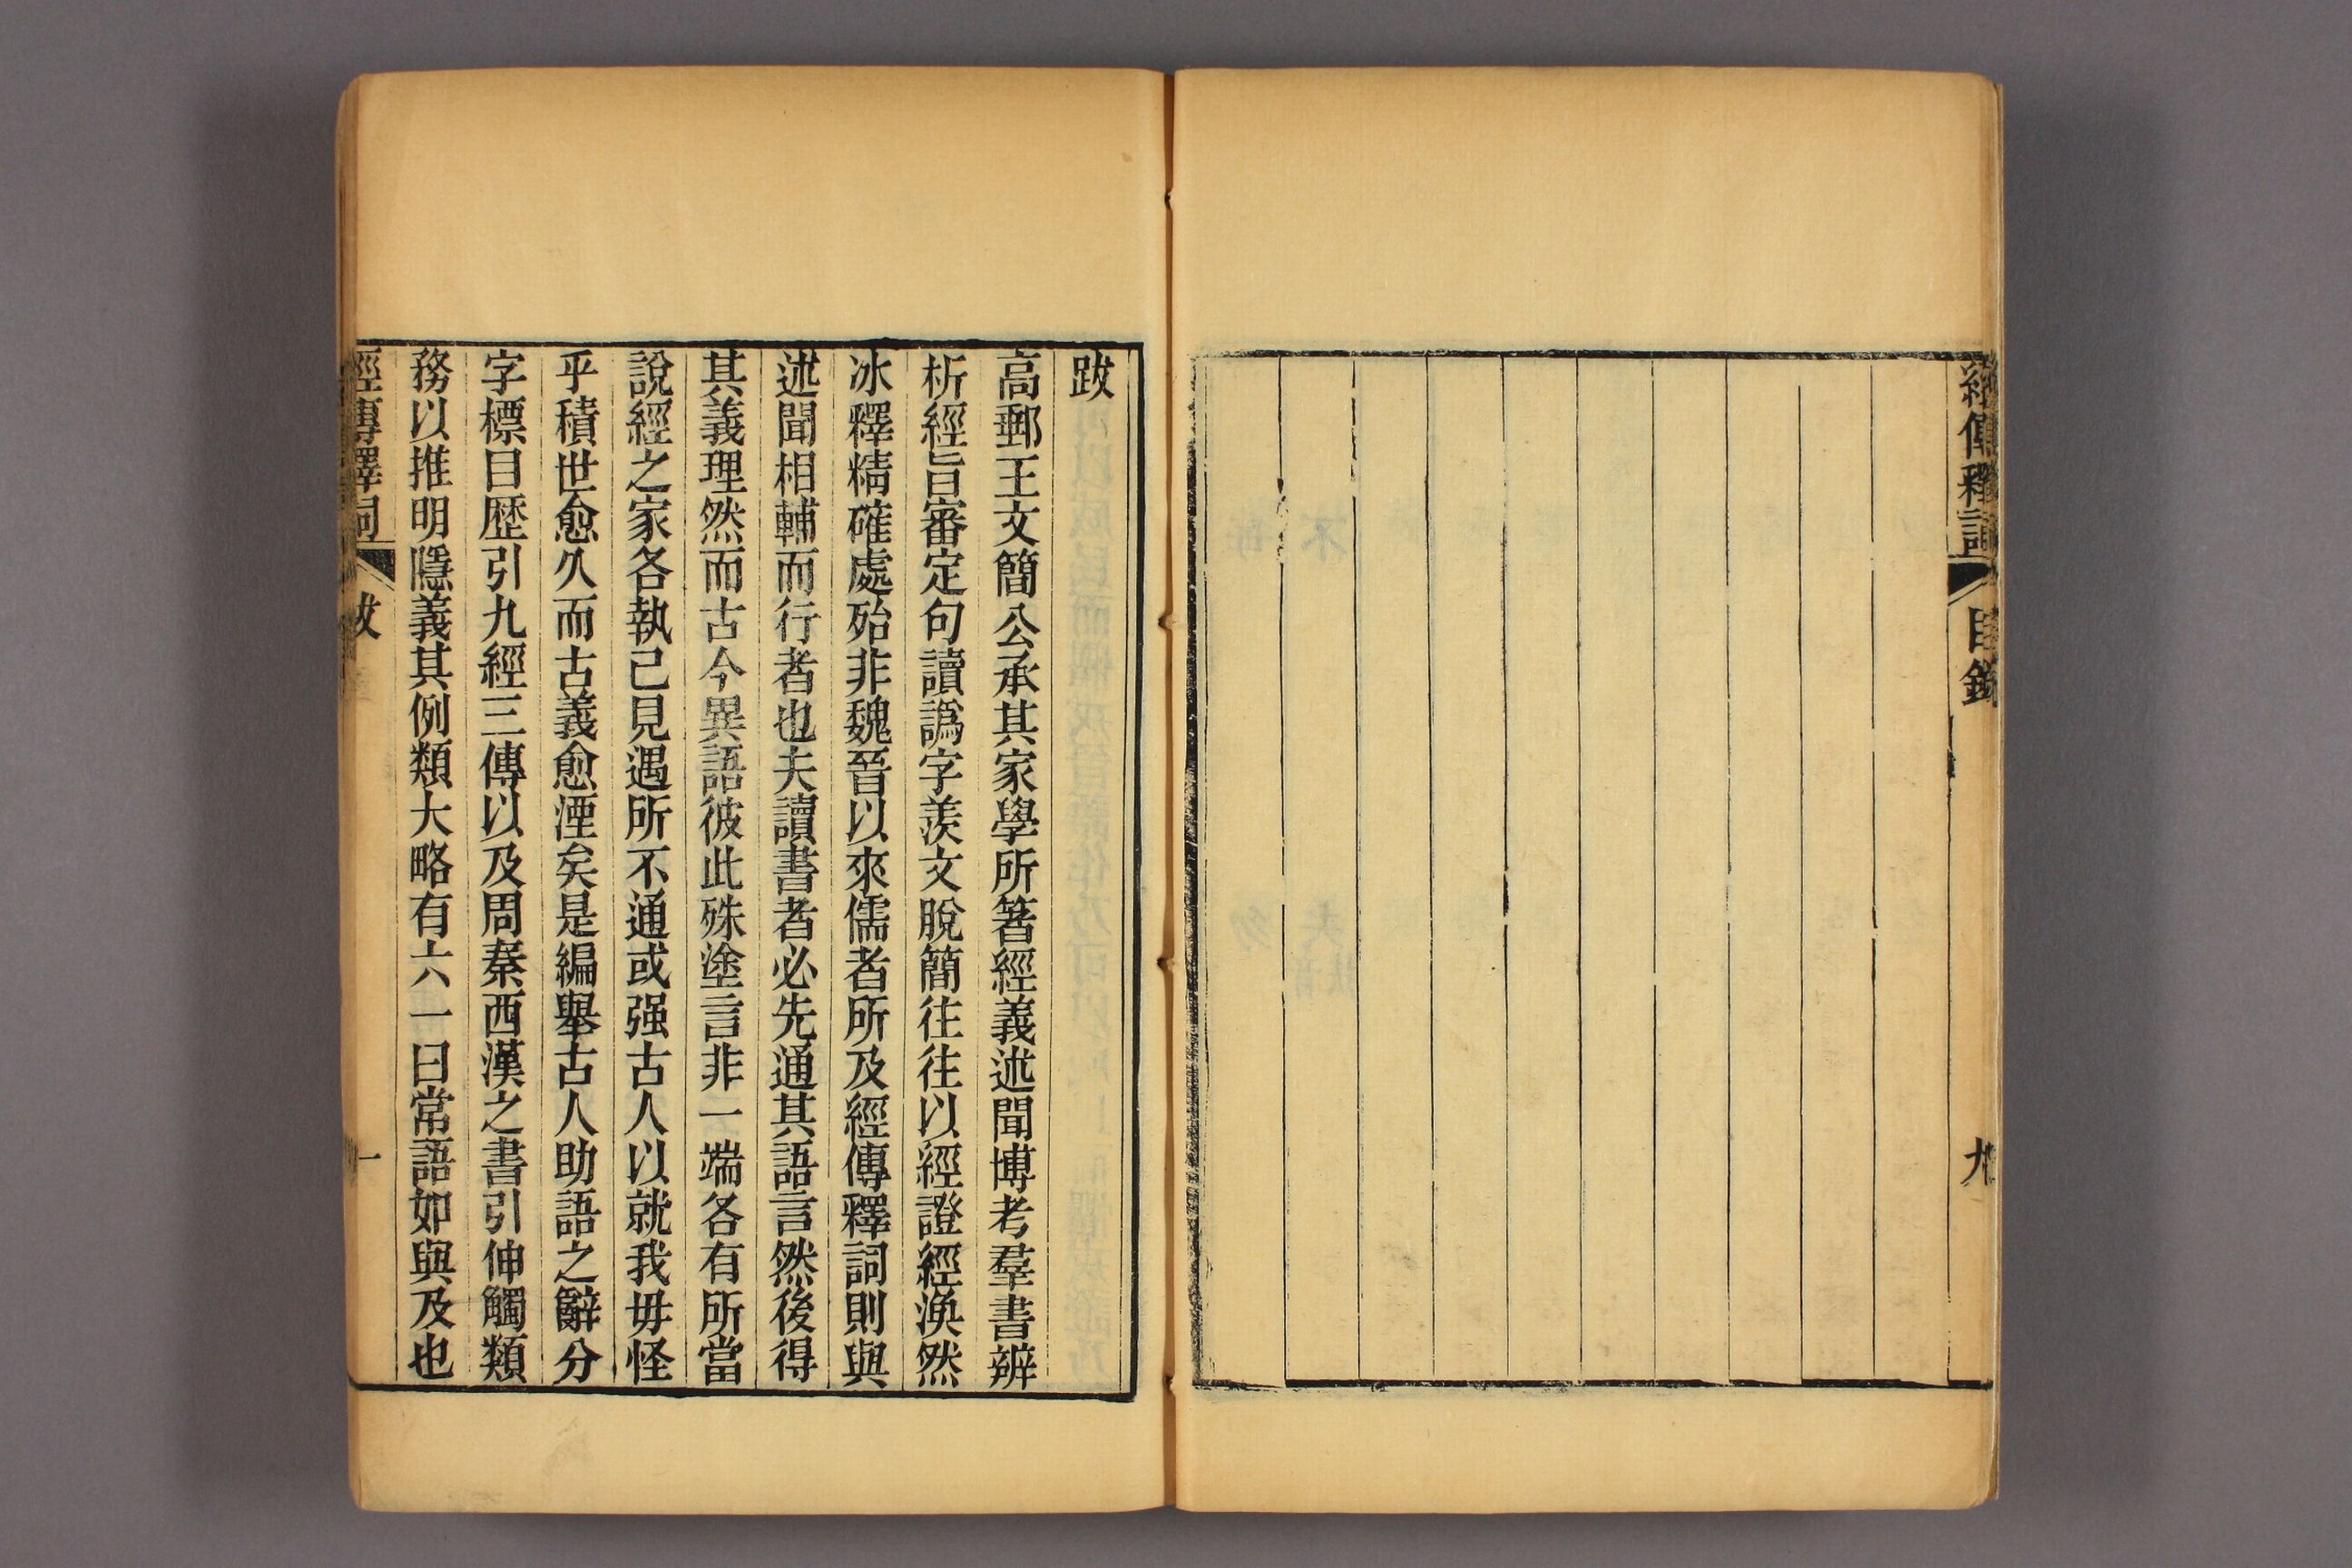 經傳釋詞
目錄
九
跋
高郵王文簡公承其家學所箸經義述聞博考羣書辨
析經旨審定句讀譌字羨文脫簡往往以經證經渙然
冰釋精確處殆非魏晉以來儒者所及經傳釋詞則與
述聞相輔而行者也夫讀書者必先通其語言然後得
其義理然而古今異語彼此殊塗言非一端各有所當
說經之家各執己見遇所不通或强古人以就我毋怪
乎積世愈久而古義愈湮矣是編舉古人助語之辭分
字標目歷引九經三傳以及周秦西漢之書引伸觸類
務以推明隱義其例類大略有六一曰常語如與及也
經傳釋詞
跋
一